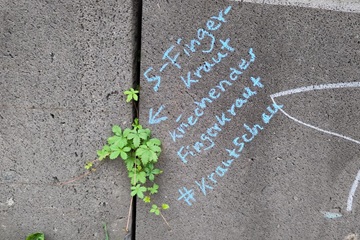 5-Finger-
kraut
kriechendes
Fingerkraut
#Krautschau